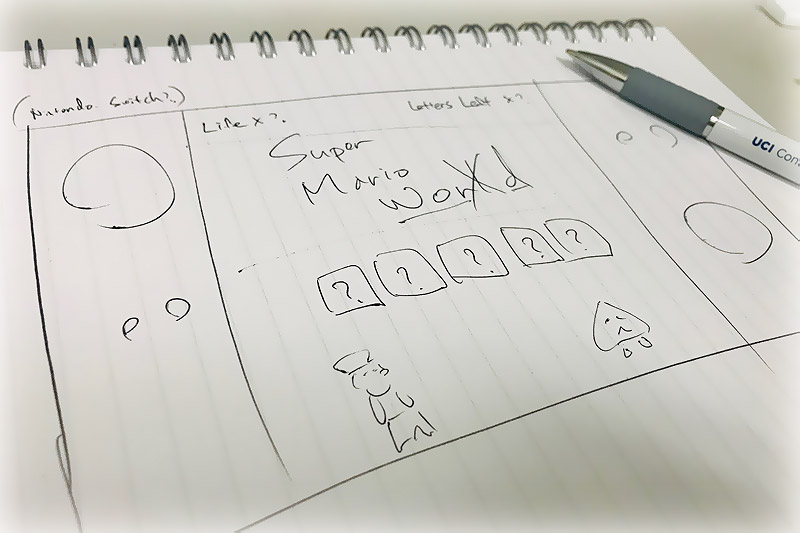 (Nintendo Switch?.)
Life x ?.
Letters Left x ?
Super
Mario
World
? ? ? ? ?
UCI